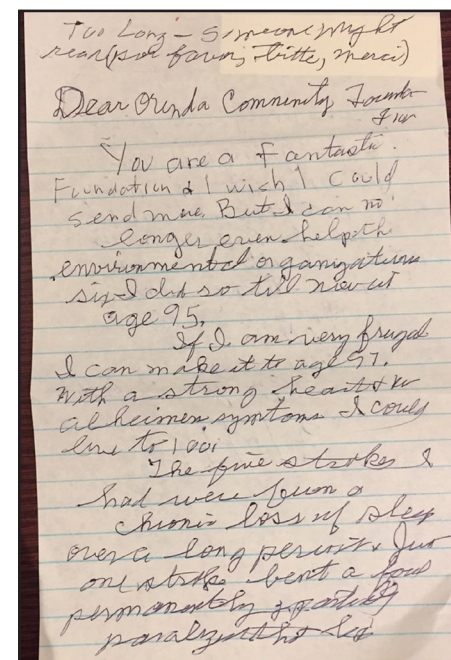 Too Long – Someone might
read (por favor, bitte, merci)
Dear Orinda Community Founda-
tion
You are a fantastic
Foundation & I wish I could
send more. But I can no
longer even help th
environmental organizations
I did so til now at
age 95.
If I am very frugal
I can make it to age 97.
With a strong heart & no
alheimer symtoms I could
live to 100.
The five strokes I
had were from a
chronic loss of sleep
over a long period &
one stroke bent a
permanently & partially
paralyzed